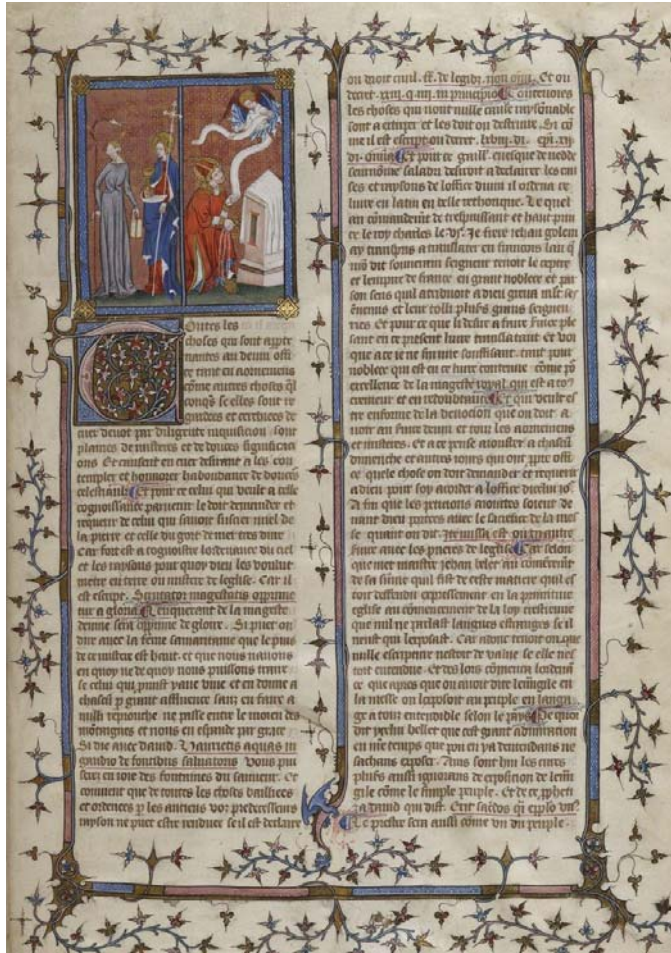 Toutes les
choses qui sont appar
tenantes au devin offi
ce tant en aornemens
cõme autres choses q̃l
conq̃s se elles sont re
gardees et cerchees de
cuer devot par diligente inquisition sont
plaines de misteres et de doulces significaci
ons Et causent en cuer desirant a les con
templer et honnorer habondance de doulceur
celestiaulx Et pour ce celui qui veult a celle
cognoissance parvenir le doit demander et
requerir de celui qui savoit succer miel de
la pierre et celle du gort de mer tres dure
Car fort est a cognoistre lordenance du ciel
et les raysons pour quoy dieu les voulut
mettre en terre ou mistere de leglise. Car il
est escript. Scrutator magestatis opprime
tur a gloria Lenquerant de la mageste
devine sera opprime de gloire. Si puet on
dire avec la feme samaritaine que le puis
de ce mistere est hault. et que nous navons
en quoy ne de quoy nous puissons traire
se celui qui puist yaue vive et en donne a
chascũ p grant affluence sanz en faire a
nulli reprouche ne passe entre le moien des
montaignes et nous en espande par grace
Si die avec david. Haurietis aquas in
gaudio de fontibus salvatoris Vous pui
serez en joie des fontaines du sauveur. Et
convient que de toutes les choses baillees
et ordenees p les anciens voz predecesseurs
rayson ne puet estre rendue se il est declaire
ou droit civil. ff. de legibz. non oĩm. Et ou
decret. xxiii. q. iii. in principio Toutevoies
les choses qui nont nulle cause raysonable
sont a extirper et les doit on destruire. Si cõ
me il est escript ou decret.
Et pour ce guill. evesque de
desiroit a declairier les cau
ses et raysons de loffice divin il ordena ce
livre en latin en belle rethorique. Le quel
au cõmandement de trespuissant et haut prin
ce le roy charles le vᵉ. Je frere jehan golein
ay translate en francois
mõ dit souverain seigneur tenoit le ceptre
et lempire de france en grant noblece et par
son sens quil attribuoit a dieu greva
et leur tolli plusieurs grans seigneu
ries Et pour ce que je desire a faire
sant en ce present livre translatant et voi
que a ce je ne suy mie souffisant. tant pour
noblece qui est en ce livre contenue cõme po^r
excellence de la mageste royal qui est a to^s
cremeur et en redoubtance Et qui veult es
tre enforme de la devocion que on doit a
voir au service devin et touz les aornemens
et misteres. Et a ce pense adjouster a chascũ
dimenche et autres jours qui ont ppre offi
ce quele chose on doit demander et requerir
a dieu pour soy acorder a loffice dicelui jo^r
A fin que les peticions ajoutees soient de
vant dieu portees avec le sacrifice de la mes
se quant on dit. Ite missa est
avec les prieres de leglise Car selon
que met maistre jehan belet au cõmencem̃t
de sa sõme quil fist de ceste matiere quil es
toit deffendu expressement en la primitive
eglise au cõmencement de la loy crestienne
que nul ne parlast langues estranges se il
nestoit qui lexposast. Car adonc tenoit on que
nulle escripture nestoit de value se elle nes
toit entendue. Et des lors cõmenca lordena
ce que apres que on avoit dite leuvangile en
la messe on lexposoit au peuple en langa
ge a touz entendible selon le pays De quoy
dit
en me temps que pou en ya dentendans ne
sachans exposer. Ains sont huy les cures
plus̃s aussi ignorans de exposition de leuvã
gile cõme le simple peuple. Et de ce
a david qui dist. Erit sacdos
Le prestre sera aussi cõme un du peuple.